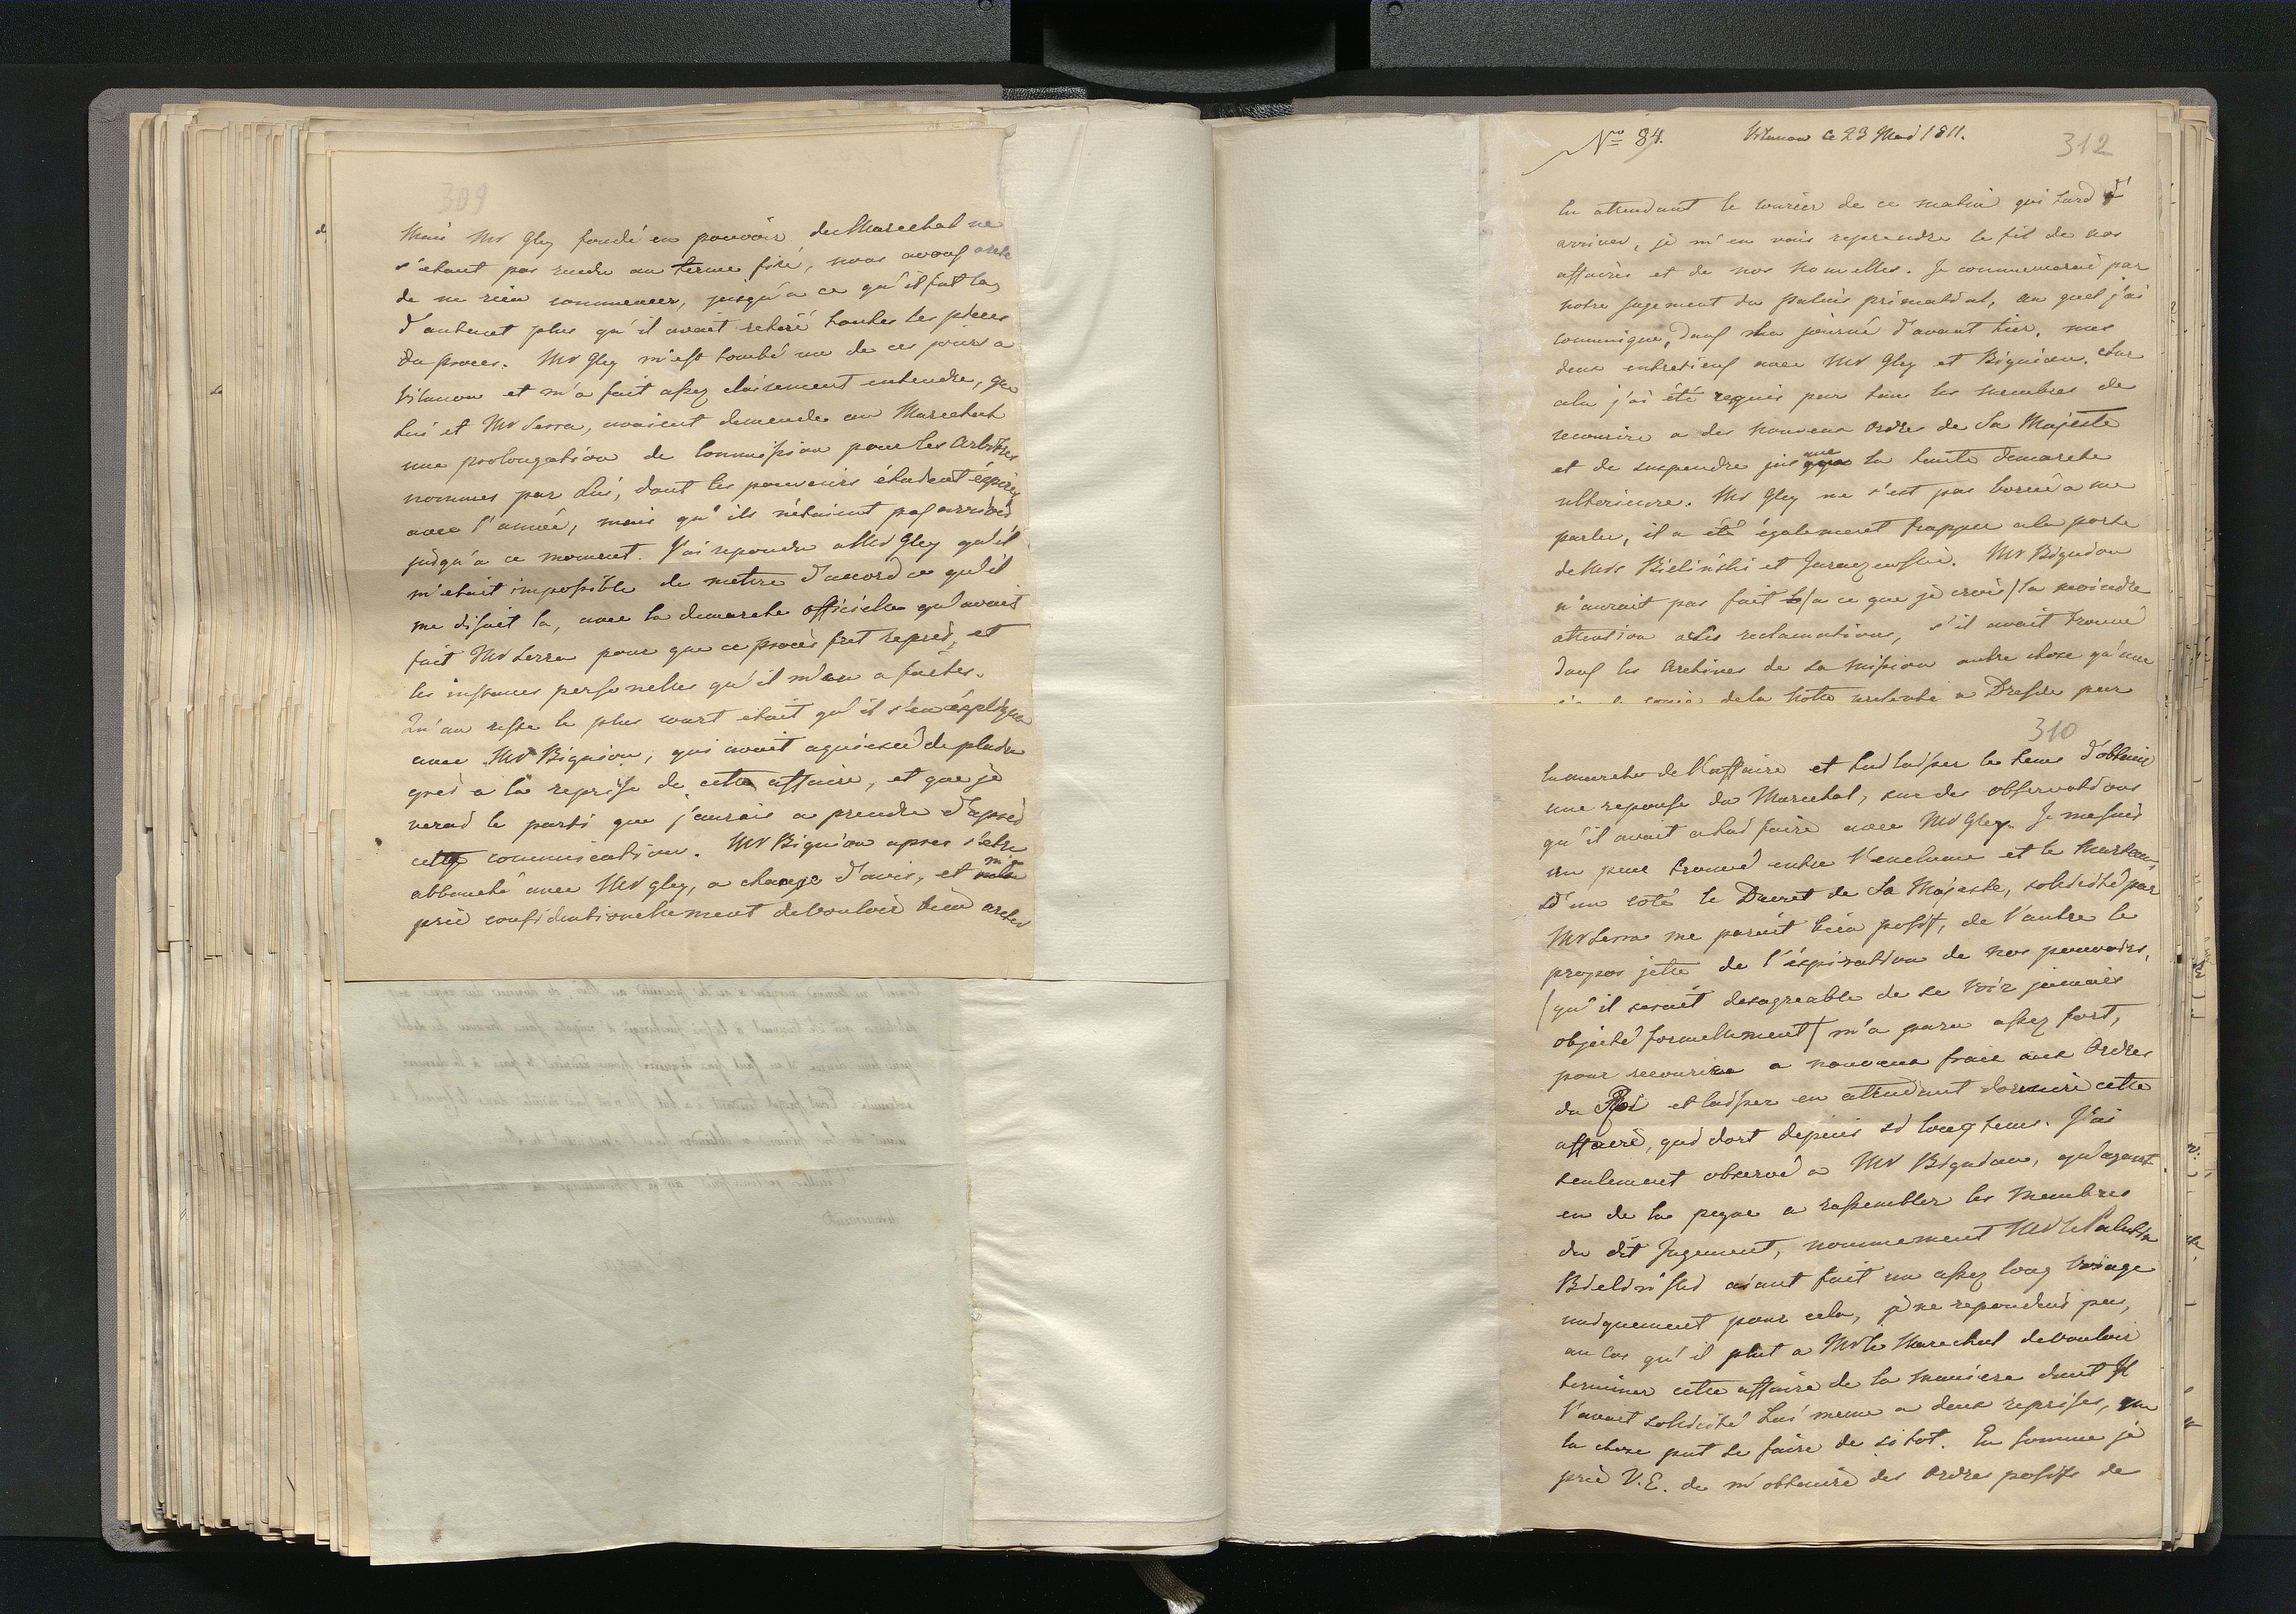 309
Mais Mr Gley fondé en pouvoir du Marechal ne
s'etant pas rendu au terme fixé, nous avons
de ne rien commencer, jusqu'a ce qu'il fut la,
d'autant plus qu'il avait retiré toutes les pieces
du proces. Mr Gley m'est tombé un de ces jours a
Vilanow et m'a fait assez clairement entendre, que
Lui et Mr Serra, avaient demandes au Marechal
une prolongation de Commission pour les Arbitres
nommes par Lui, dont les pouvoirs étaient éxpirés
avec l'année, mais qu'ils n'étaient pas arrivés
jusqu'a ce moment. J'ai repondu a Mr Gley qu'il
m'etait impossible de metre d'accord ce qu'il
me disait la, avec la demarche officielle qu'avait
fait Mr Serra pour que ce procès fut repris, et
les instances personelles qu'il m'en a faites.
Qu'au reste le plus court etait qu'il s'en éxpliqua
avec Mr Bignion, qui avait aquiescé de plein
gré a la reprise de cette affaire, et que je
verai le parti que j'aurais a prendre d'après
cette communication. Mr Bignion apres s'etre
abbouché avec Mr Gley, a change d'avis, et m'a
prié confidentionellement de vouloir bien
No 84. Vilanow ce 23 Mai 1811.
312
En attendant le courier de ce matin qui tard d'
arriver, je m'en vais reprendre le fil de nos
affaires et de nos nouvelles. Je commencerai par
notre jugement du palais primatial, au quel j'ai
comunique, dans la journé d'avant hier, mes
deux entretiens avec Mrs Gley et Bignion. Sur
cela j'ai été requis par tous les membres de
recourire a des nouveaux Ordres de Sa Majeste
et de suspendre jusque la toute demarche
ulterieure. Mr Gley ne s'est pas borné a me
parler, il a été également frapper a la porte
de Mrs Bieliński et . Mr Bignion
n'aurait pas fait /a ce que je crois/ la moindre
attention a Ses reclamations, s'il avait trouvé
dans les Archives de Sa mission autre chose qu'une
copie de la Notte de Dresde par
310
la marche de l'affaire et lui laisser le tems d'obtenir
une reponse du Marechal, sur des observations
qu'il avait a lui faire avec Mr Gley. Je me suis
un peu trouvé entre l'enclume et le Marteau,
d'un coté le Decret de Sa Majeste, solicité par
Mr Serra me parait bien positif, de l'autre le
propos jetté de l'éxpiration de nos pouvoirs,
/qu'il serait desagreable de se voir jamais
objecté formellement/ m'a paru assez fort,
pour recourire a nouveau fraix aux Ordres
du Roi et laisser en attendant dormire cette
affaire, qui dort depuis si long tems. J'ai
seulement observé a Mr Bignion, qu'ayant
eu de la peine a rassembler les Membres
du dit Jugement, nommement Mr le Palatin
Bieliński aiant fait un assez long voiage
uniquement pour cela, je ne repondais pas,
au cas qu'il plut a Mr le Marechal de vouloir
terminer cette affaire de la maniere dont Il
l'avait solicité Lui meme a deux reprises, que
la chose put se faire de sitot. En somme je
prie V.E. de m'obtenire des Ordres positifs de